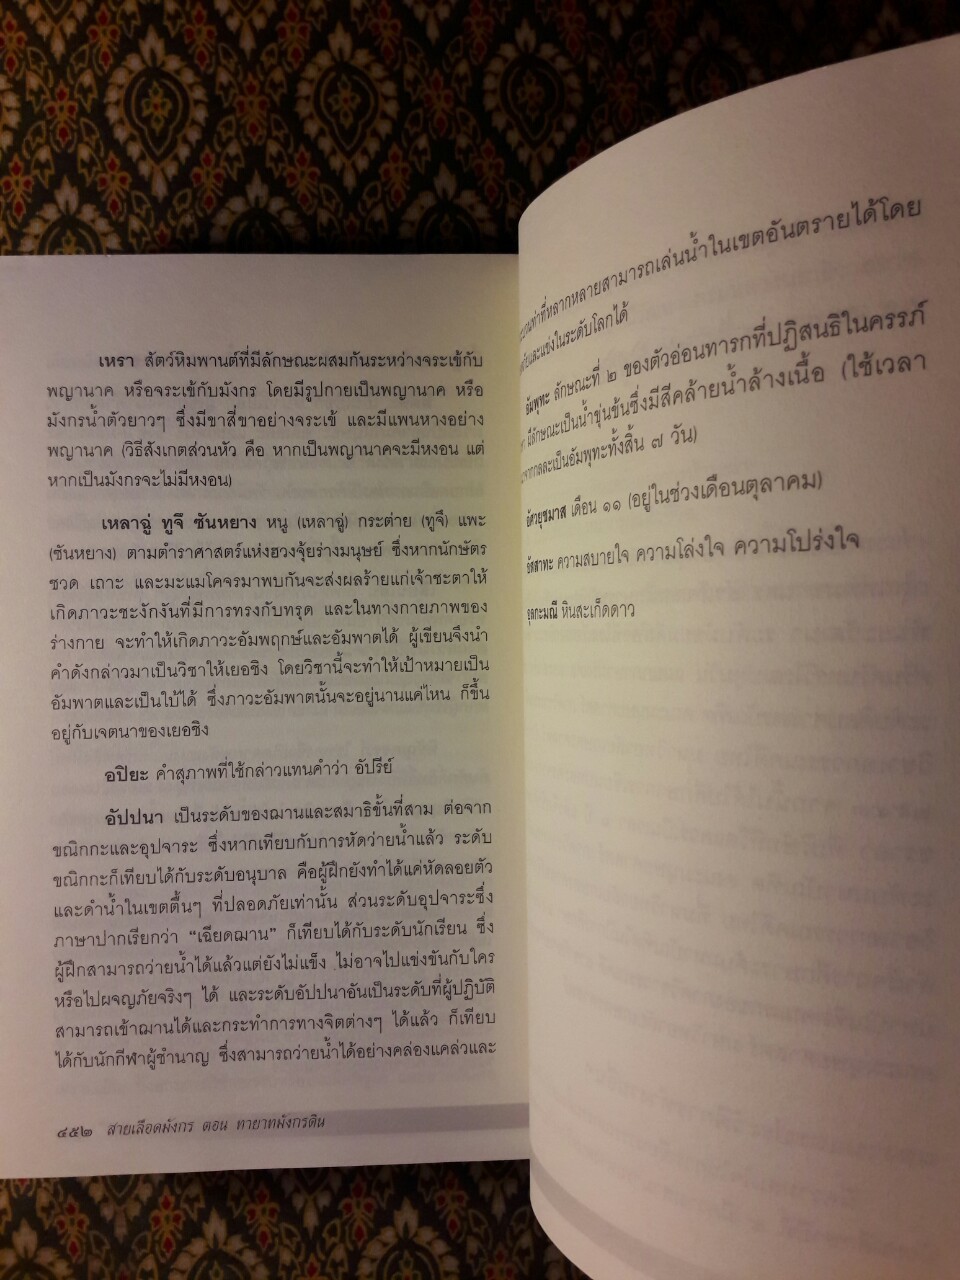 เหรา สัตว์หิมพานต์ที่มีลักษณะผสมกันระหว่างจระเข้กับ
พญานาค หรือจระเข้กับมังกร โดยมีรูปกายเป็นพญานาค หรือ
มังกรน้ำตัวยาวๆ ซึ่งมีขาสี่ขาอย่างจระเข้ และมีแพนหางอย่าง
พญานาค (วิธีสังเกตส่วนหัว คือ หากเป็นพญานาคจะมีหงอน แต่
หากเป็นมังกรจะไม่มีหงอน)
เหลาฉู่ ทูจึ ซันหยาง หนู (เหลาฉู่) กระต่าย (ทูจึ) แพะ
(ซันหยาง) ตามตำราศาสตร์แห่งฮวงจุ้ยร่างมนุษย์ ซึ่งหากนักษัตร
ชวด เถาะ และมะแมโคจรมาพบกันจะส่งผลร้ายแก่เจ้าชะตาให้
เกิดภาวะชะงักงันที่มีการทรงกับทรุด และในทางกายภาพของ
ร่างกาย จะทำให้เกิดภาวะอัมพฤกษ์และอัมพาตได้ ผู้เขียนจึงนำ
คำดังกล่าวมาเป็นวิชาให้เยอชิง โดยวิชานี้จะทำให้เป้าหมายเป็น
อัมพาตและเป็นใบ้ได้ ซึ่งภาวะอัมพาตนั้นจะอยู่นานแค่ไหน ก็ขึ้น
อยู่กับเจตนาของเยอชิง
อปิยะ คำสุภาพที่ใช้กล่าวแทนคำว่า อัปรีย์
อัปปนา เป็นระดับของฌานและสมาธิขั้นที่สาม ต่อจาก
ขณิกกะและอุปจาระ ซึ่งหากเทียบกับการหัดว่ายน้ำแล้ว ระดับ
ขณิกกะก็เทียบได้กับระดับอนุบาล คือผู้ฝึกยังทำได้แค่หัดลอยตัว
และดำน้ำในเขตตื้นๆ ที่ปลอดภัยเท่านั้น ส่วนระดับอุปจาระซึ่ง
ภาษาปากเรียกว่า “เฉียดฌาน” ก็เทียบได้กับระดับนักเรียน ซึ่ง
ผู้ฝึกสามารถว่ายน้ำได้แล้วแต่ยังไม่แข็ง ไม่อาจไปแข่งขันกับใคร
หรือไปผจญภัยจริงๆ ได้ และระดับอัปปนาอันเป็นระดับที่ผู้ปฏิบัติ
สามารถเข้าฌานได้และกระทำการทางจิตต่างๆ ได้แล้ว ก็เทียบ
ได้กับนักกีฬาผู้ชำนาญ ซึ่งสามารถว่ายน้ำได้อย่างคล่องแคล่วและ
๔๕๒ สายเลือดมังกร ตอน ทายาทมังกรดิน
ท่าที่หลากหลายสามารถเล่นน้ำในเขตอันตรายได้โดย
และแข่งในระดับโลกได้
อัมพุทะ ลักษณะที่ ๒ ของตัวอ่อนทารกที่ปฏิสนธิในครรภ์
มีลักษณะเป็นน้ำขุ่นข้นซึ่งมีสีคล้ายน้ำล้างเนื้อ (ใช้เวลา
จากกลละเป็นอัมพุทะทั้งสิ้น ๗ วัน)
อัศวยุชมาส เดือน ๑๑ (อยู่ในช่วงเดือนตุลาคม)
อัสสาทะ ความสบายใจ ความโล่งใจ ความโปร่งใจ
อุลกะมณี หินสะเก็ดดาว